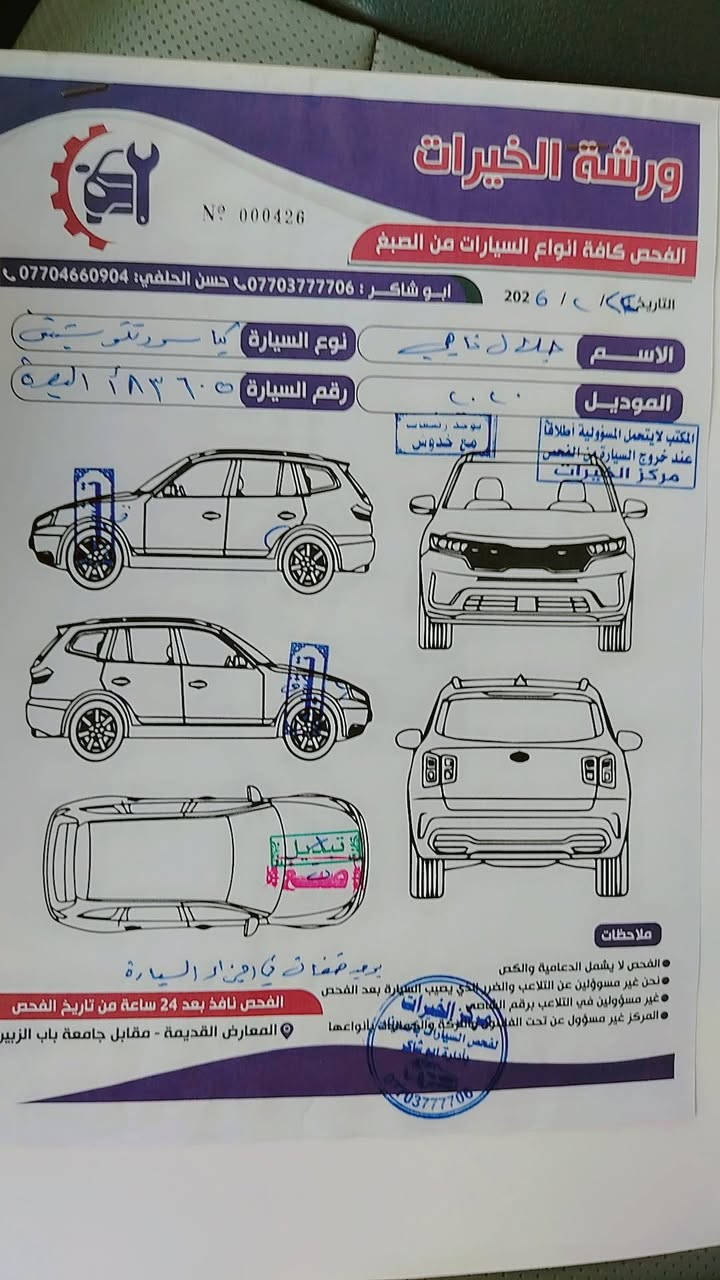 ورشة الخيرات
Nº 000426
الفحص كافة انواع السيارات من الصبغ
ابو شاكر : 07703777706 حسن الحلفي: 07704660904
التاريخ / ٢ / 2026
الاسم جلال
نوع السيارة كيا سبورتتج
الموديل ٢٠٢٠
رقم السيارة ٢٨٣٦٠٥ البصرة
يوجد
مع خدوش
المكتب لايتحمل المسؤولية أطلاقاً
عند خروج السيارة من الفحص
مركز الخيرات
تبديل
صبغ
ملاحظات
الفحص لا يشمل الدعامية والكص
نحن غير مسوؤلين عن التلاعب والضرر الذي يصيب السيارة بعد الفحص
غير مسؤولين في التلاعب برقم الشاصي
المركز غير مسؤول عن تحت
يوجد في اجزاء السيارة
الفحص نافذ بعد 24 ساعة من تاريخ الفحص
المعارض القديمة - مقابل جامعة باب الزبير
مركز الخيرات
لفحص السيارات
بأدارة ابو شاكر
07703777706